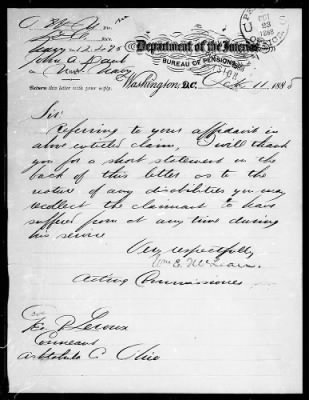 No.
Department of the Interior,
BUREAU OF PENSIONS,
John A.
Navy
Washington, D.C. 11, 188
Return this letter with your reply.
OCT
23
Sir
Referring to your affidavit in
above entitled claim, I will thank
you for a short statement on the
back of this letter as to the
nature of any disabilities you may
recollect the claimant to have
suffered from at any time during
his service
Very respectfully
Wm E. McLean.
Acting Commissioner
P Leroux
Conneaut
Ashtabula C. Ohio